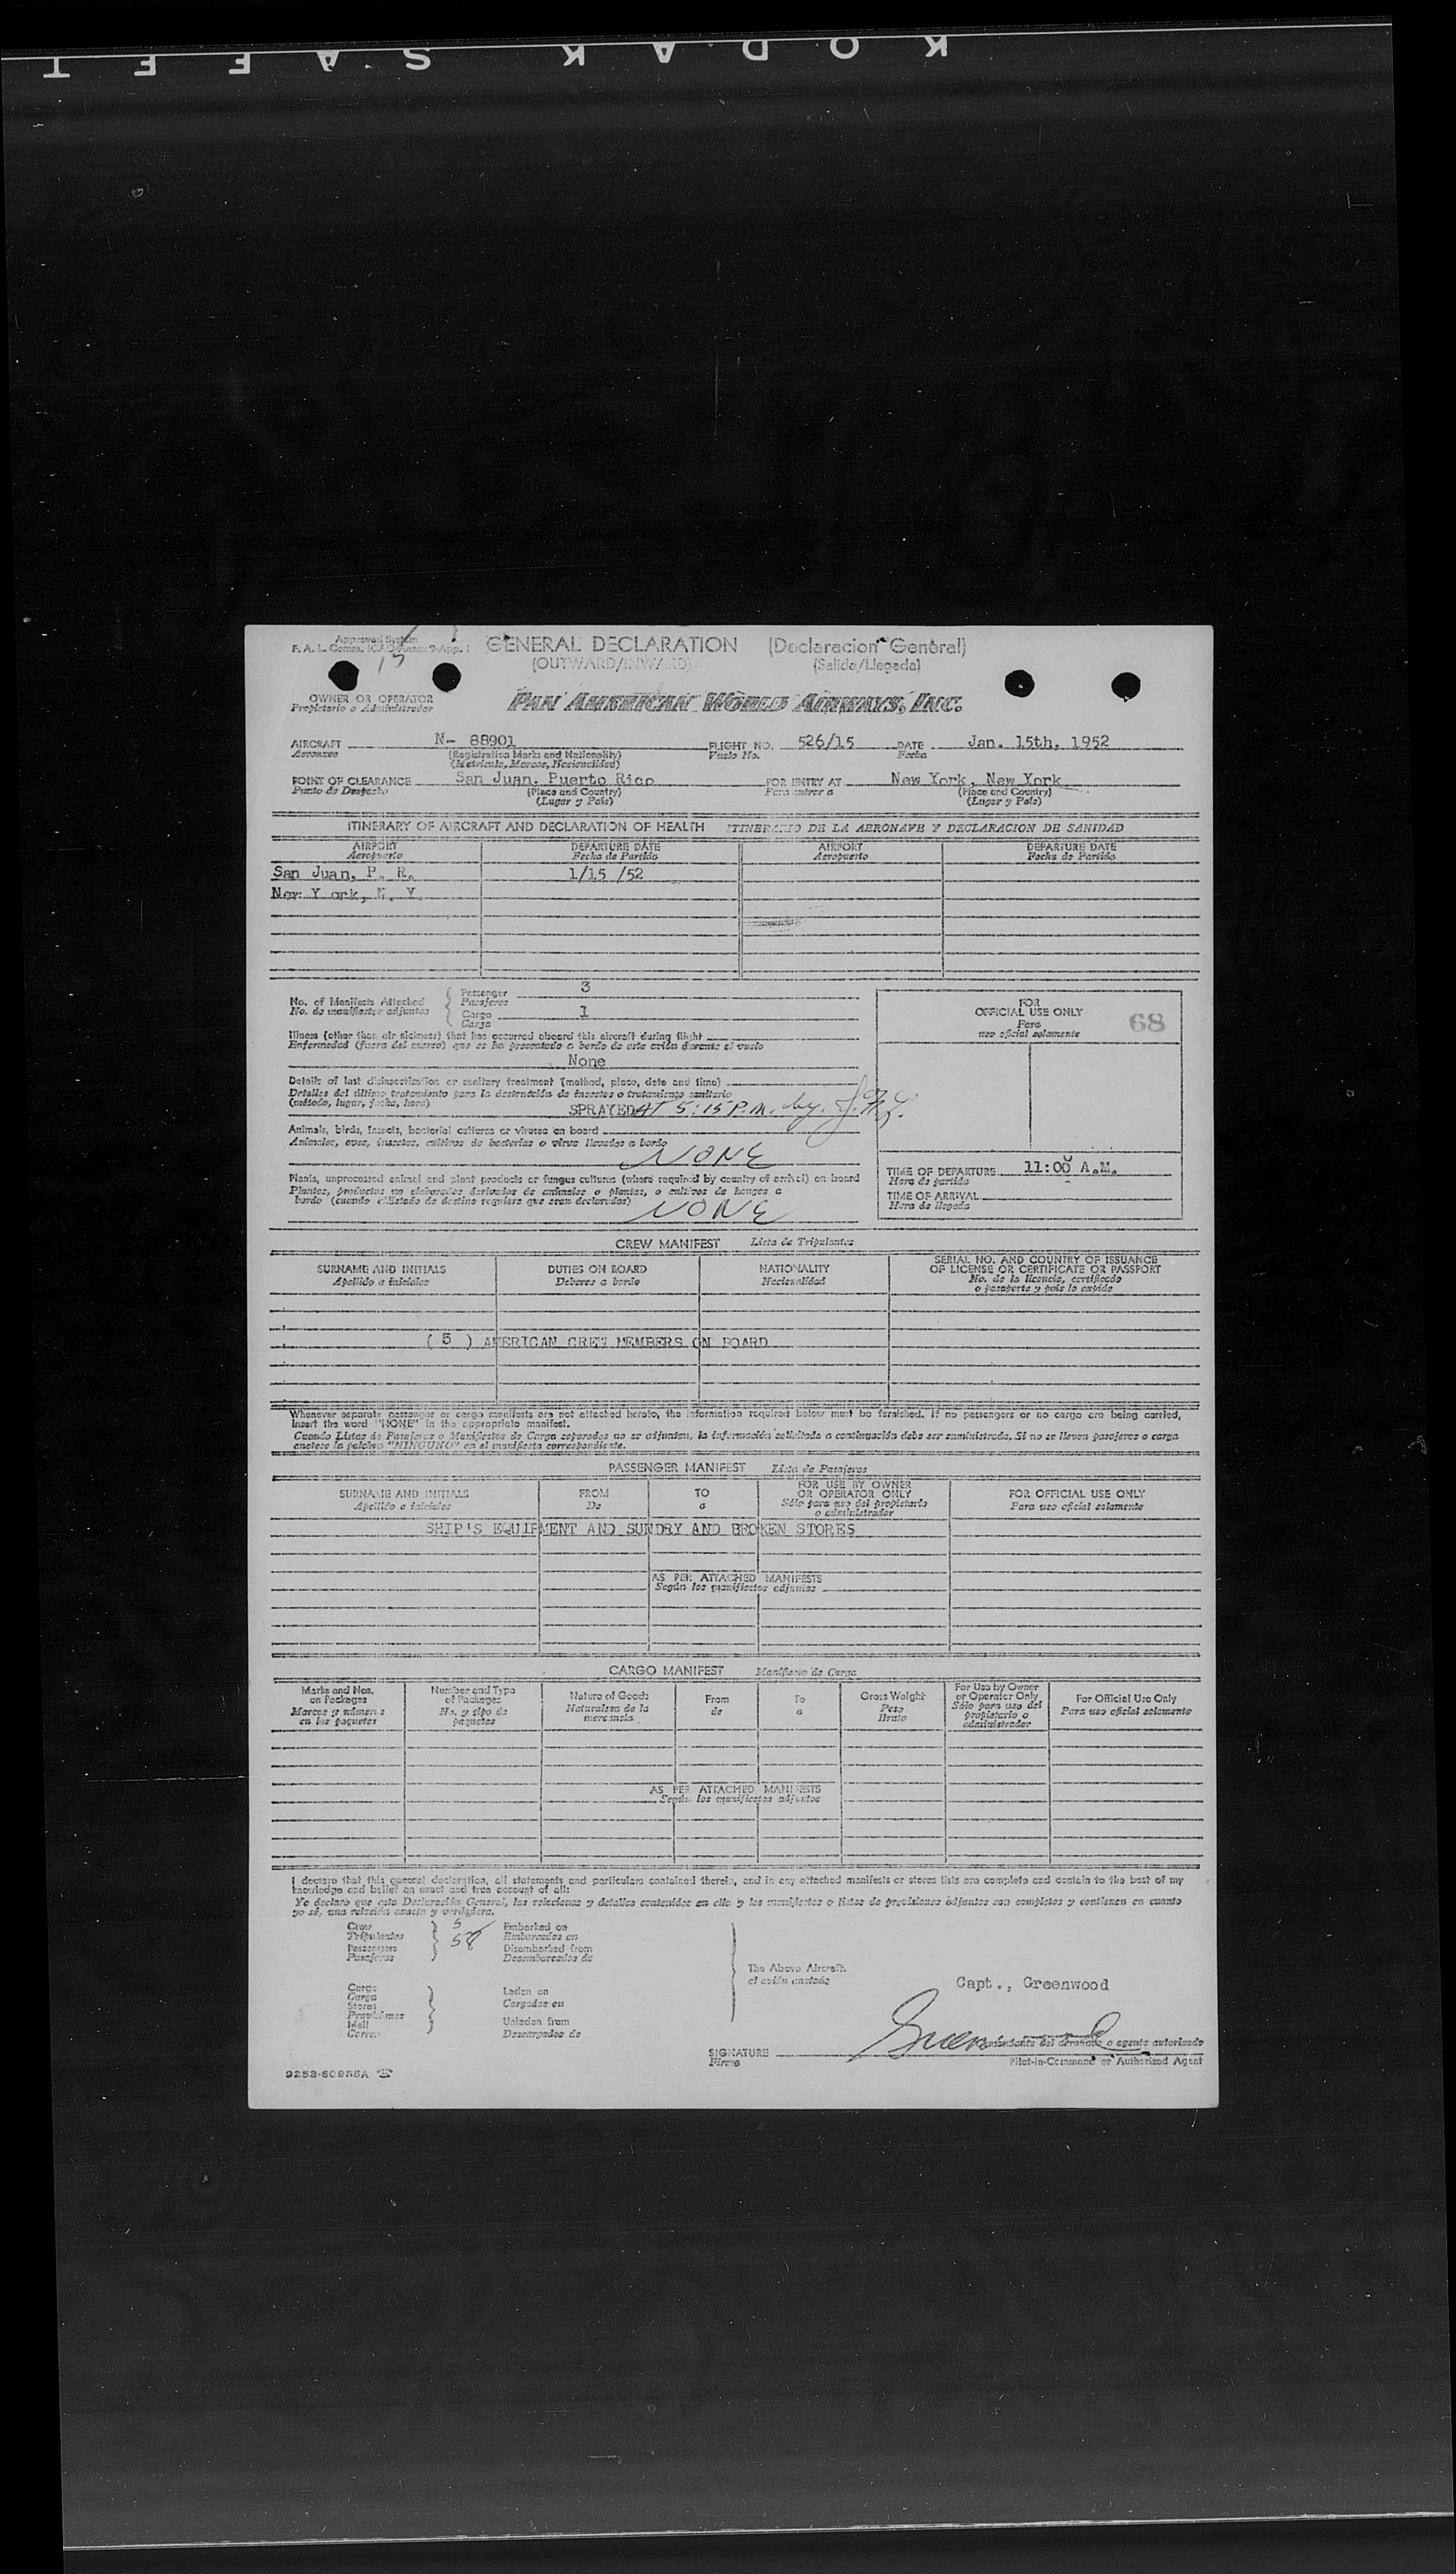 KODAK SAFET
Approved System
F. A. L. Comm. ICAO Annex 9-App. 1
GENERAL DECLARATION (Declaracion General)
15
(OUTWARD/INWARD) (Salida/Llegada)
OWNER OR OPERATOR
Propietario o Administrador
PAN AMERICAN WORLD AIRWAYS, INC.
AIRCRAFT N- 88901 FLIGHT NO. 526/15 DATE Jan. 15th, 1952
Aeronave (Registration Marks and Nationality) Vuelo No. Fecha
(Matricula, Marcas, Nacionalidad)
POINT OF CLEARANCE San Juan, Puerto Rico FOR ENTRY AT New York, New York
Punto de Despacho (Place and Country) Para entrar a (Place and Country)
(Lugar y País) (Lugar y País)
ITINERARY OF AIRCRAFT AND DECLARATION OF HEALTH ITINERARIO DE LA AERONAVE Y DECLARACION DE SANIDAD
AIRPORT DEPARTURE DATE AIRPORT DEPARTURE DATE
Aeropuerto Fecha de Partida Aeropuerto Fecha de Partida
San Juan, P. R. 1/15 /52
New Y ork, N. Y.
No. of Manifests Attached
No. de manifiestos adjuntos
Passenger 3
Pasajeros
Cargo 1
Carga
Illness (other than air sickness) that has occurred aboard this aircraft during flight
Enfermedad (fuera del mareo) que se ha presentado a bordo de este avión durante el vuelo
None
Details of last disinsectization or sanitary treatment (method, place, date and time)
Detalles del último tratamiento para la destrucción de insectos o tratamiento sanitario
(método, lugar, fecha, hora)
SPRAYED AT 5:15 P.M. by
Animals, birds, insects, bacterial cultures or viruses on board
Animales, aves, insectos, cultivos de bacterias o virus llevados a bordo
NONE
Plants, unprocessed animal and plant products or fungus cultures (where required by country of arrival) on board
Plantas, productos no elaborados derivados de animales o plantas, o cultivos de hongos a
bordo (cuando el Estado de destino requiera que sean declarados)
NONE
FOR
OFFICIAL USE ONLY
Para
uso oficial solamente
68
TIME OF DEPARTURE 11:00 A.M.
Hora de partida
TIME OF ARRIVAL
Hora de llegada
CREW MANIFEST Lista de Tripulantes
SURNAME AND INITIALS DUTIES ON BOARD NATIONALITY SERIAL NO. AND COUNTRY OF ISSUANCE
OF LICENSE OR CERTIFICATE OR PASSPORT
Apellido e iniciales Deberes a bordo Nacionalidad No. de la licencia, certificado
o pasaporte y país lo expide
( 5 ) AMERICAN CREW MEMBERS ON BOARD
Whenever separate passenger or cargo manifests are not attached hereto, the information required below must be furnished. If no passengers or no cargo are being carried,
insert the word "NONE" in the appropriate manifest.
Cuando Listas de Pasajeros o Manifiestos de Carga separados no se adjuntan, la información solicitada a continuación debe ser suministrada. Si no se llevan pasajeros o carga
anótese la palabra "NINGUNO" en el manifiesto correspondiente.
PASSENGER MANIFEST Lista de Pasajeros
SURNAME AND INITIALS FROM TO FOR USE BY OWNER
OR OPERATOR ONLY FOR OFFICIAL USE ONLY
Apellido e iniciales De a Sólo para uso del propietario
o administrador Para uso oficial solamente
SHIP'S EQUIPMENT AND SUNDRY AND BROKEN STORES
AS PER ATTACHED MANIFESTS
Según los manifiestos adjuntos
CARGO MANIFEST Manifiesto de Carga
Marks and Nos.
on Packages
Marcas y números
en los paquetes
Number and Type
of Packages
No. y tipo de
paquetes
Nature of Goods
Naturaleza de la
mercancia
From
de
To
a
Gross Weight
Peso
Bruto
For Use by Owner
or Operator Only
Sólo para uso del
propietario o
administrador
For Official Use Only
Para uso oficial solamente
AS PER ATTACHED MANIFESTS
Según los manifiestos adjuntos
I declare that this general declaration, all statements and particulars contained therein, and in any attached manifests or stores lists are complete and contain to the best of my
knowledge and belief an exact and true account of all:
Yo declaro que esta Declaración General, las relaciones y detalles contenidos en ella y los manifiestos o listas de provisiones adjuntos son completos y contienen en cuanto
yo sé, una relación exacta y verdadera.
Crew 5 Embarked on
Tripulantes Embarcados en
Passengers 58 Disembarked from
Pasajeros Desembarcados de
The Above Aircraft.
el avión anotado
Cargo Laden on
Carga Cargados en
Stores
Provisiones
Mail Unladen from
Correo Descargados de
Capt., Greenwood
Greenwood
SIGNATURE Comandante del aeronave o agente autorizado
Firma Pilot-in-Command or Authorized Agent